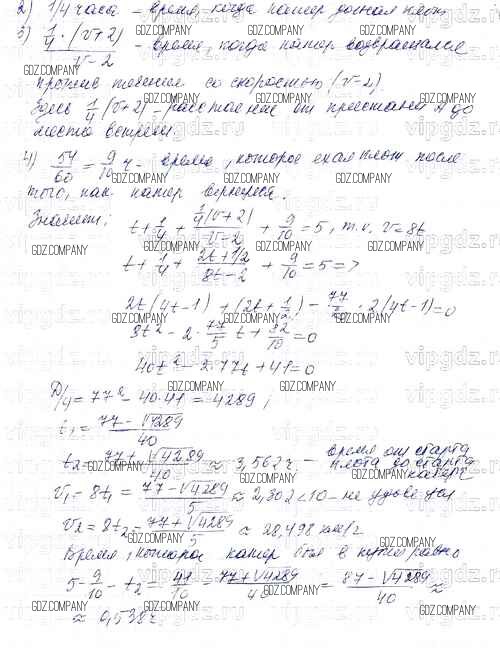 2) 1/4 часа – время, когда катер догнал плот
3) 1/4·(v+2)/(v-2) – время, когда катер возвращался
против течения со скоростью (v-2).
Здесь 1/4(v+2) – расстояние от пристани А до
места встречи
4) 54/60 = 9/10 ч – время, которое ехал плот после
того, как катер вернулся.
Значит: t + 1/4 + 1/4(v+2)/(v-2) + 9/10 = 5, т.к. v=8t
t + 1/4 + (2t+1/2)/(8t-2) + 9/10 = 5 =>
2t(4t-1) + (2t+1/2) - 77/20·2(4t-1)=0
8t² - 2·77/5 t + 82/10 = 0
40t² - 2·77t + 41=0
D/4 = 77² - 40·41 = 4289;
t₁ = (77-√4289)/40
t₂ = (77+√4289)/40 ≈ 3,562 ч – время от старта плота до старта катера
v₁ = 8t₁ = (77-√4289)/5 ≈ 2,302 < 10 – не удовл. усл
v₂ = 8t₂ = (77+√4289)/5 ≈ 28,498 км/ч
Время, которое катер был в пути равно
5 - 9/10 - t₂ = 41/10 - (77+√4289)/40 = (87-√4289)/40 ≈
≈ 0,538 ч
GDZ.COMPANY
vipgdz.ru